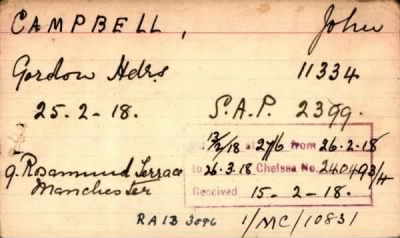 CAMPBELL, John
Gordon Hdrs 11334
25.2-18. S.A.P. 2399.
13/2/18 at 27/6 from 26.2.18
to 26.3.18 Chelsea No. 240493/4
Received 15-2-18.
9. Rosamund Terrace
Manchester
RA1B 3096 1/MC/10831